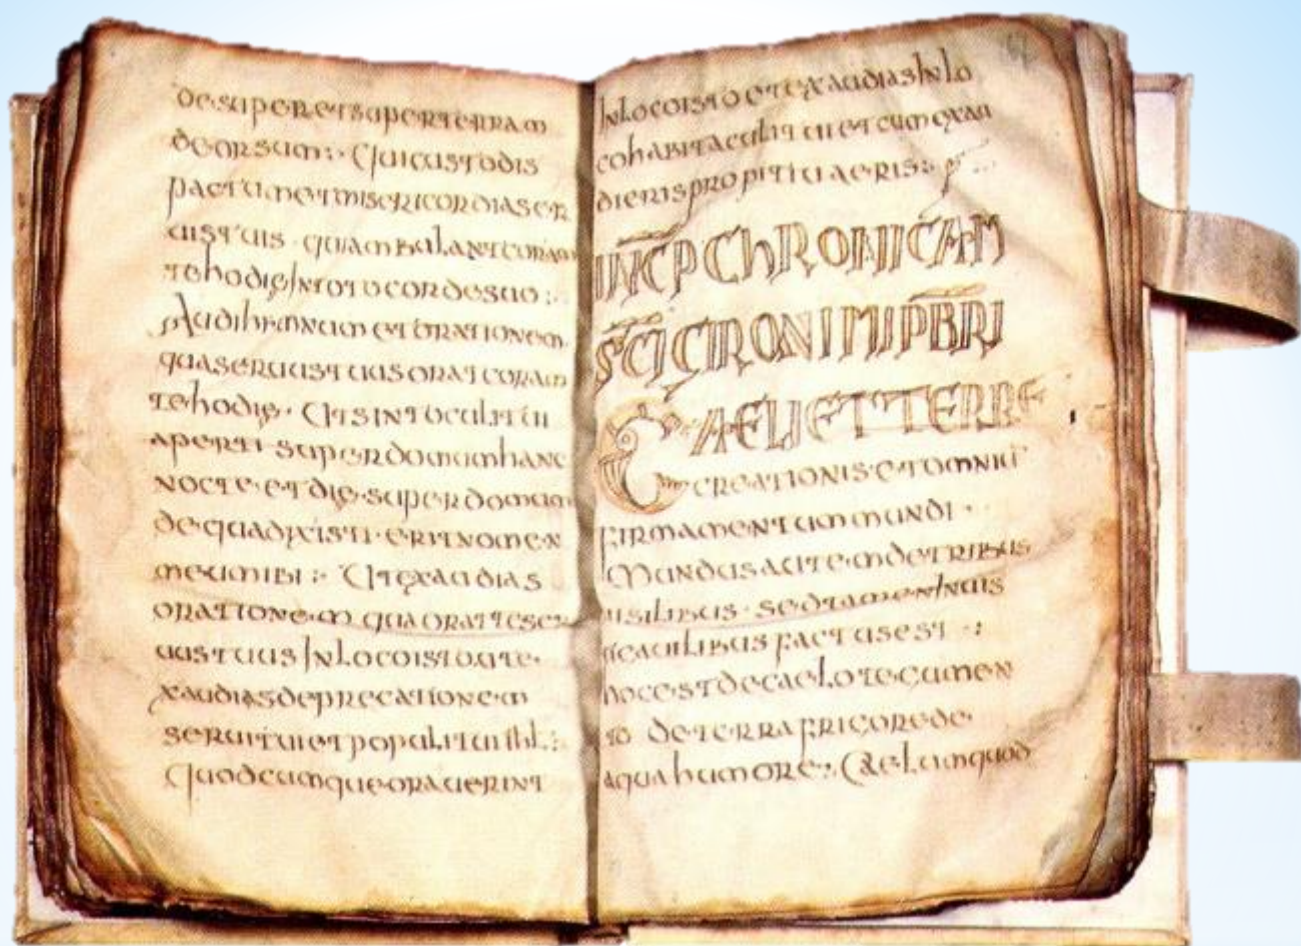 desuperetsuperterram
deorsum:· Quicustodis
pactumetmisericordiaser
uistuis · quiambulantcoram
tehodieintotocordesuo:·
Audihymnumetorationem
quaseruustuusoratcoram
tehodie · Utsintoculitui
aperti·superdomumhanc
nocteetdie·superdomum
dequadixisti·eritnomen
meumibi:· Utexaudias
orationemquaorattese
uustuusinlocoistoute
xaudiasdeprecationem
seruituietpopulituiihl:·
Quodcumqueorauerint
inlocoistoetexaudiasinlo
cohabitaculituietcumexau
dierispropitiuaeris:·
INCPCHRONICAM
SCIGIRONIMIPBRI
CAELIETTERRE
creationisetomniu
firmamentummundi ·
Mundusautemdetribus
uisilibus · sedtameninuis
ibusfactusest ·:
hocestdecaelo
deterrafrigorede
aquahumore:· Caelumquod